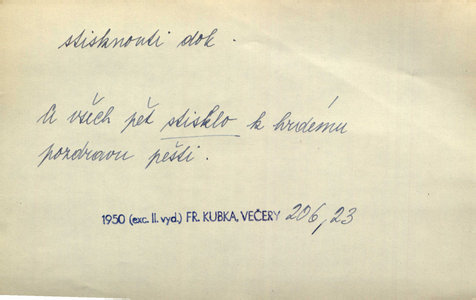 stisknouti dok.
A všech pět stisklo k hrdému
pozdravu pěsti.
1950 (exc. II. vyd.) FR. KUBKA, VEČERY 206, 23